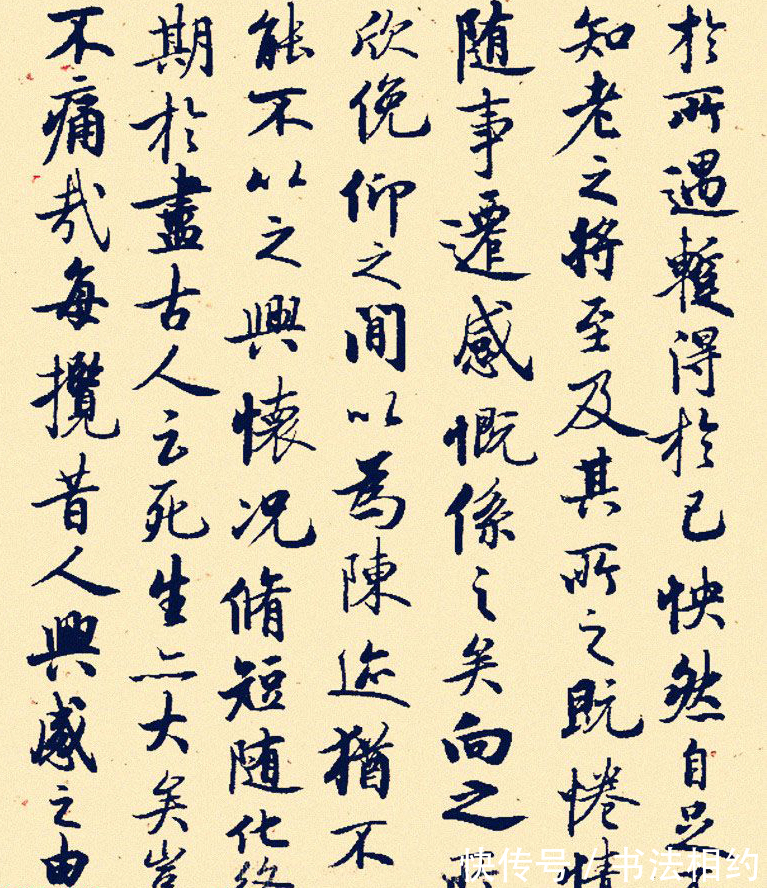 於所遇蹔得於己怏然自足
知老之將至及其所之既惓情
随事遷感慨係之矣向之
欣俛仰之間以為陳迹猶不
能不以之興懷况脩短随化終
期於盡古人云死生亦大矣豈
不痛哉每攬昔人興感之由
快传号/书法相约